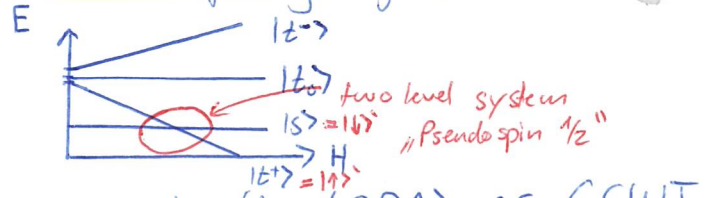 E
|t->
|t₀> two level system
|s> = |↓> „Pseudospin 1/2"
H
|t+> = |↑>